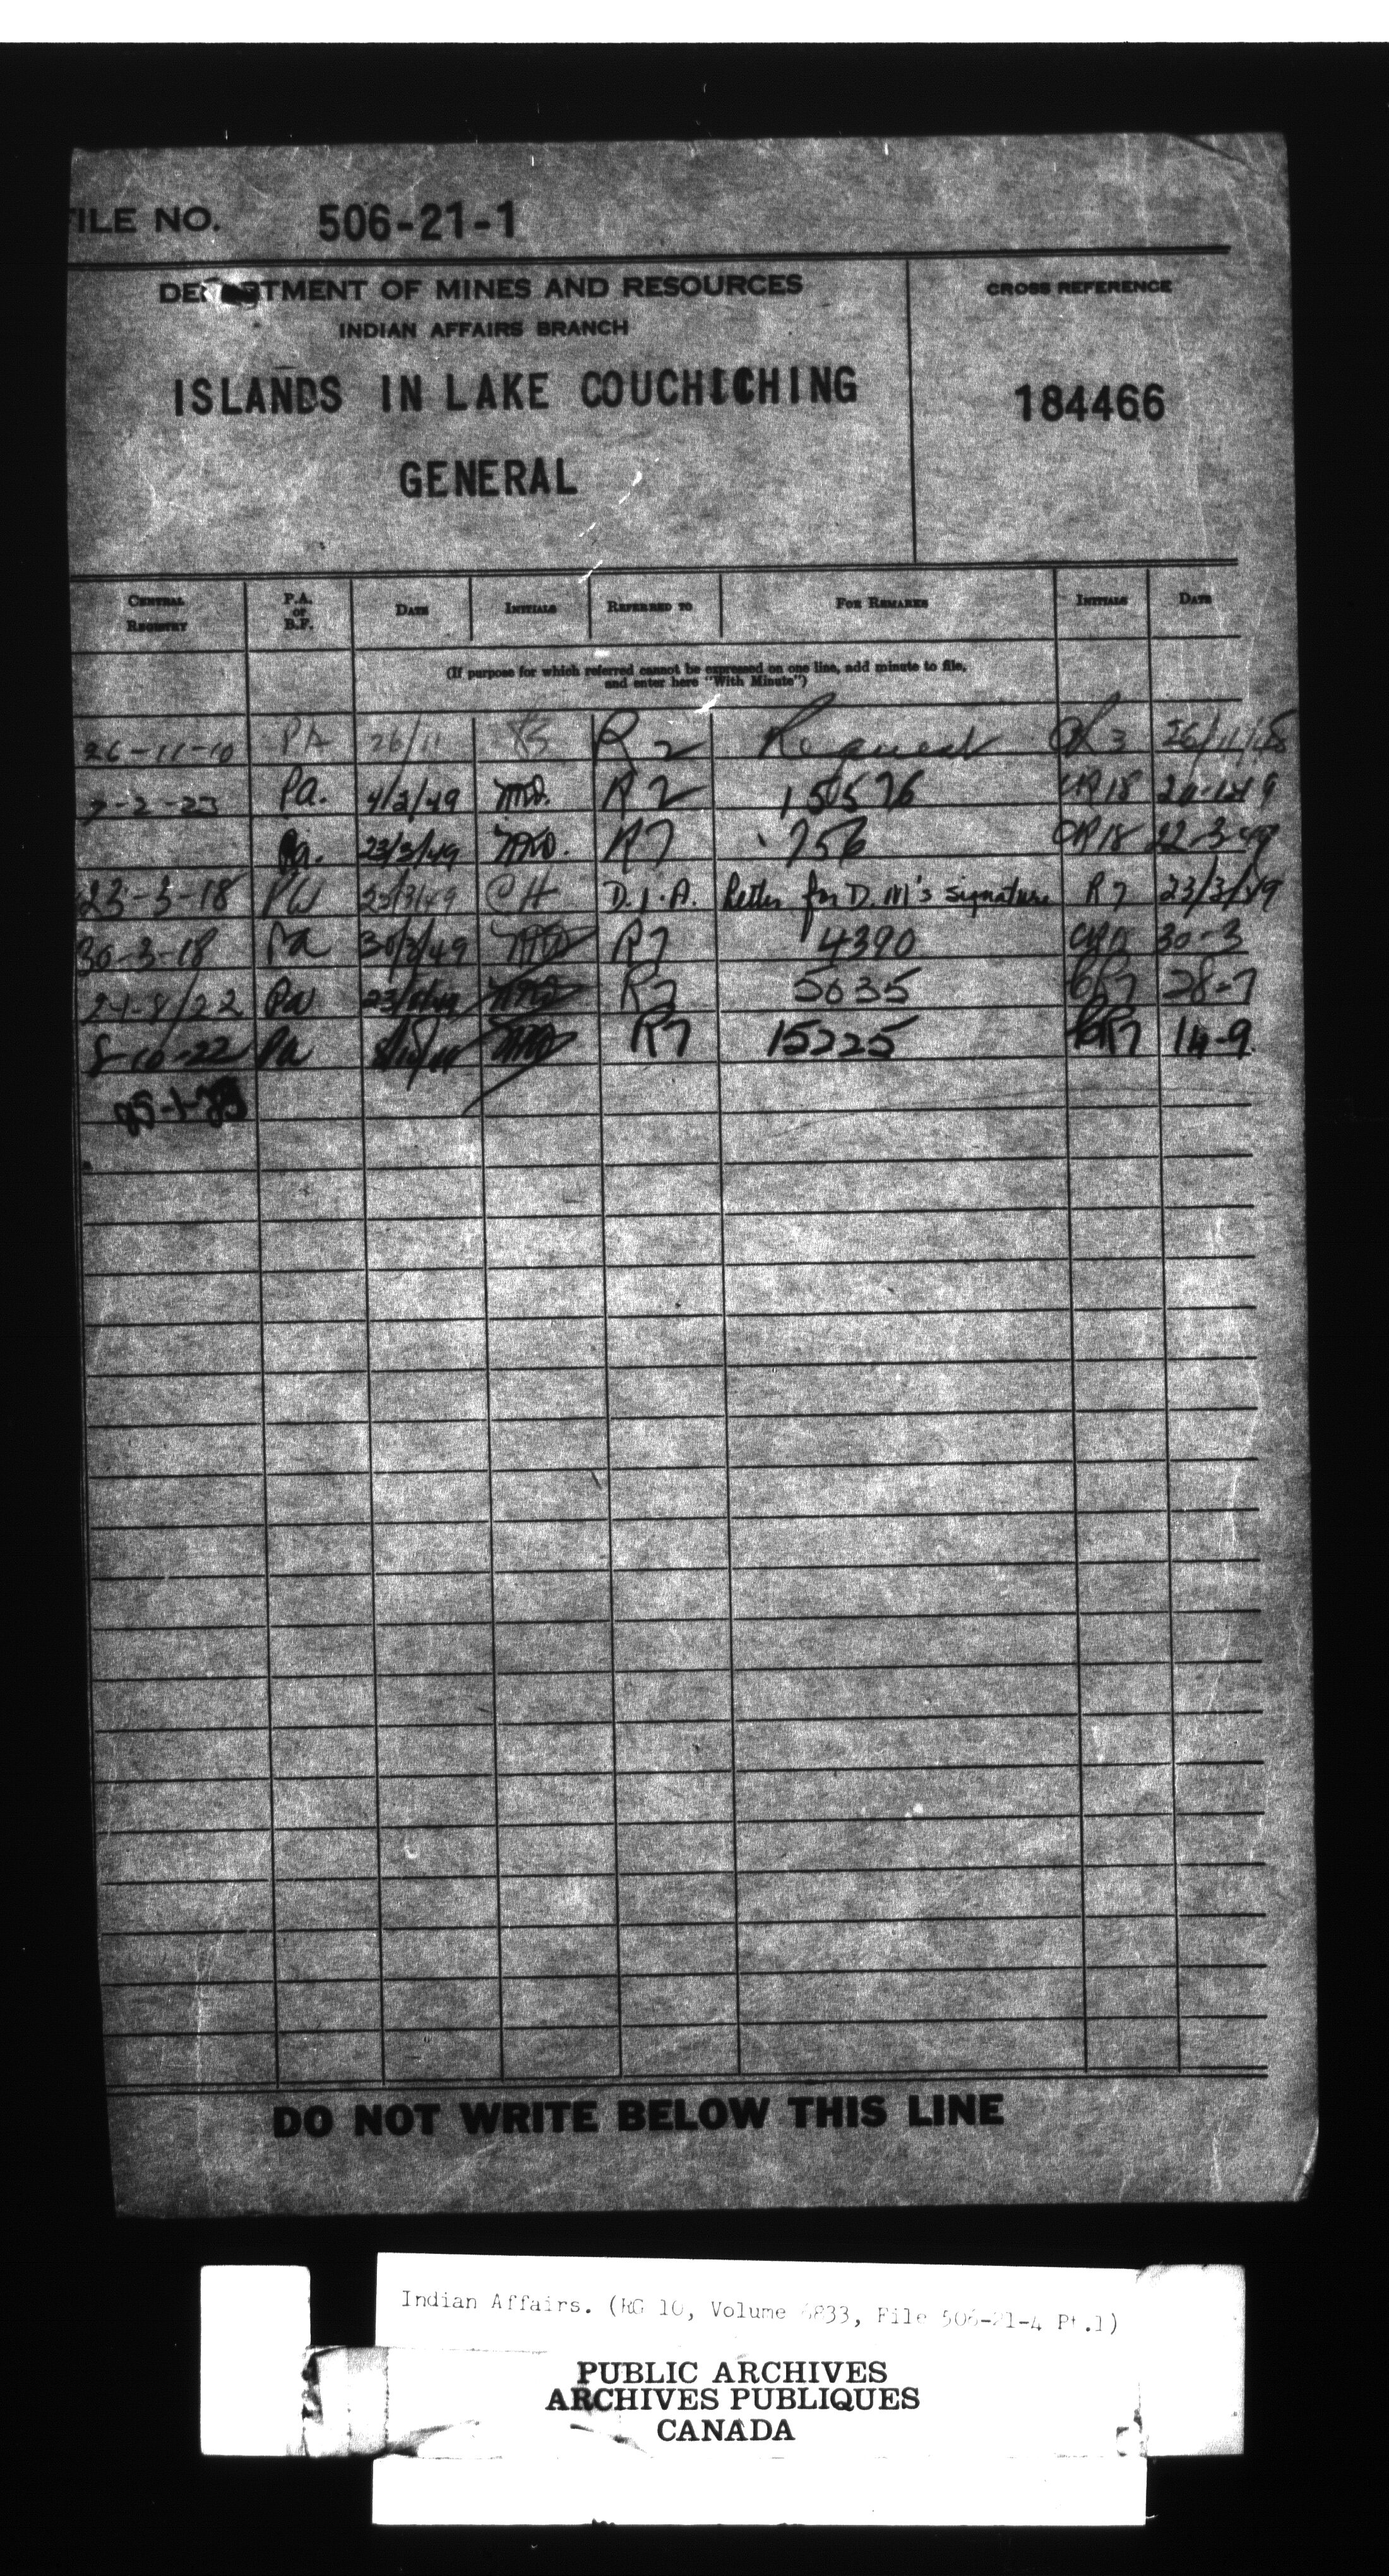 FILE NO. 506-21-1
DEPARTMENT OF MINES AND RESOURCES
CROSS REFERENCE
INDIAN AFFAIRS BRANCH
ISLANDS IN LAKE COUCHICHING
184466
GENERAL
CENTRAL REGISTRY P.A. or B.F. DATE INITIALS REFERRED TO FOR REMARKS INITIALS DATE
(If purpose for which referred cannot be expressed on one line, add minute to file,
and enter here "With Minute")
26-11-10 PA 26/11 R2 Request
7-2-23 Pa. 4/2/49 R2 15576
Pa. 23/3/49 R7 756 22-3-49
23-3-18 PW 23/3/49 CH D.I.A. Letter for D.M's signature R7 23/3/49
30-3-18 Pa 30/3/49 R7 4390 30-3
24-8/22 Pa R7 5635 CR7 28-7
8-10-22 Pa R7 15225 CR7 14-9
DO NOT WRITE BELOW THIS LINE
Indian Affairs. (RG 10, Volume 6833, File 506-21-4 Pt.1)
PUBLIC ARCHIVES
ARCHIVES PUBLIQUES
CANADA